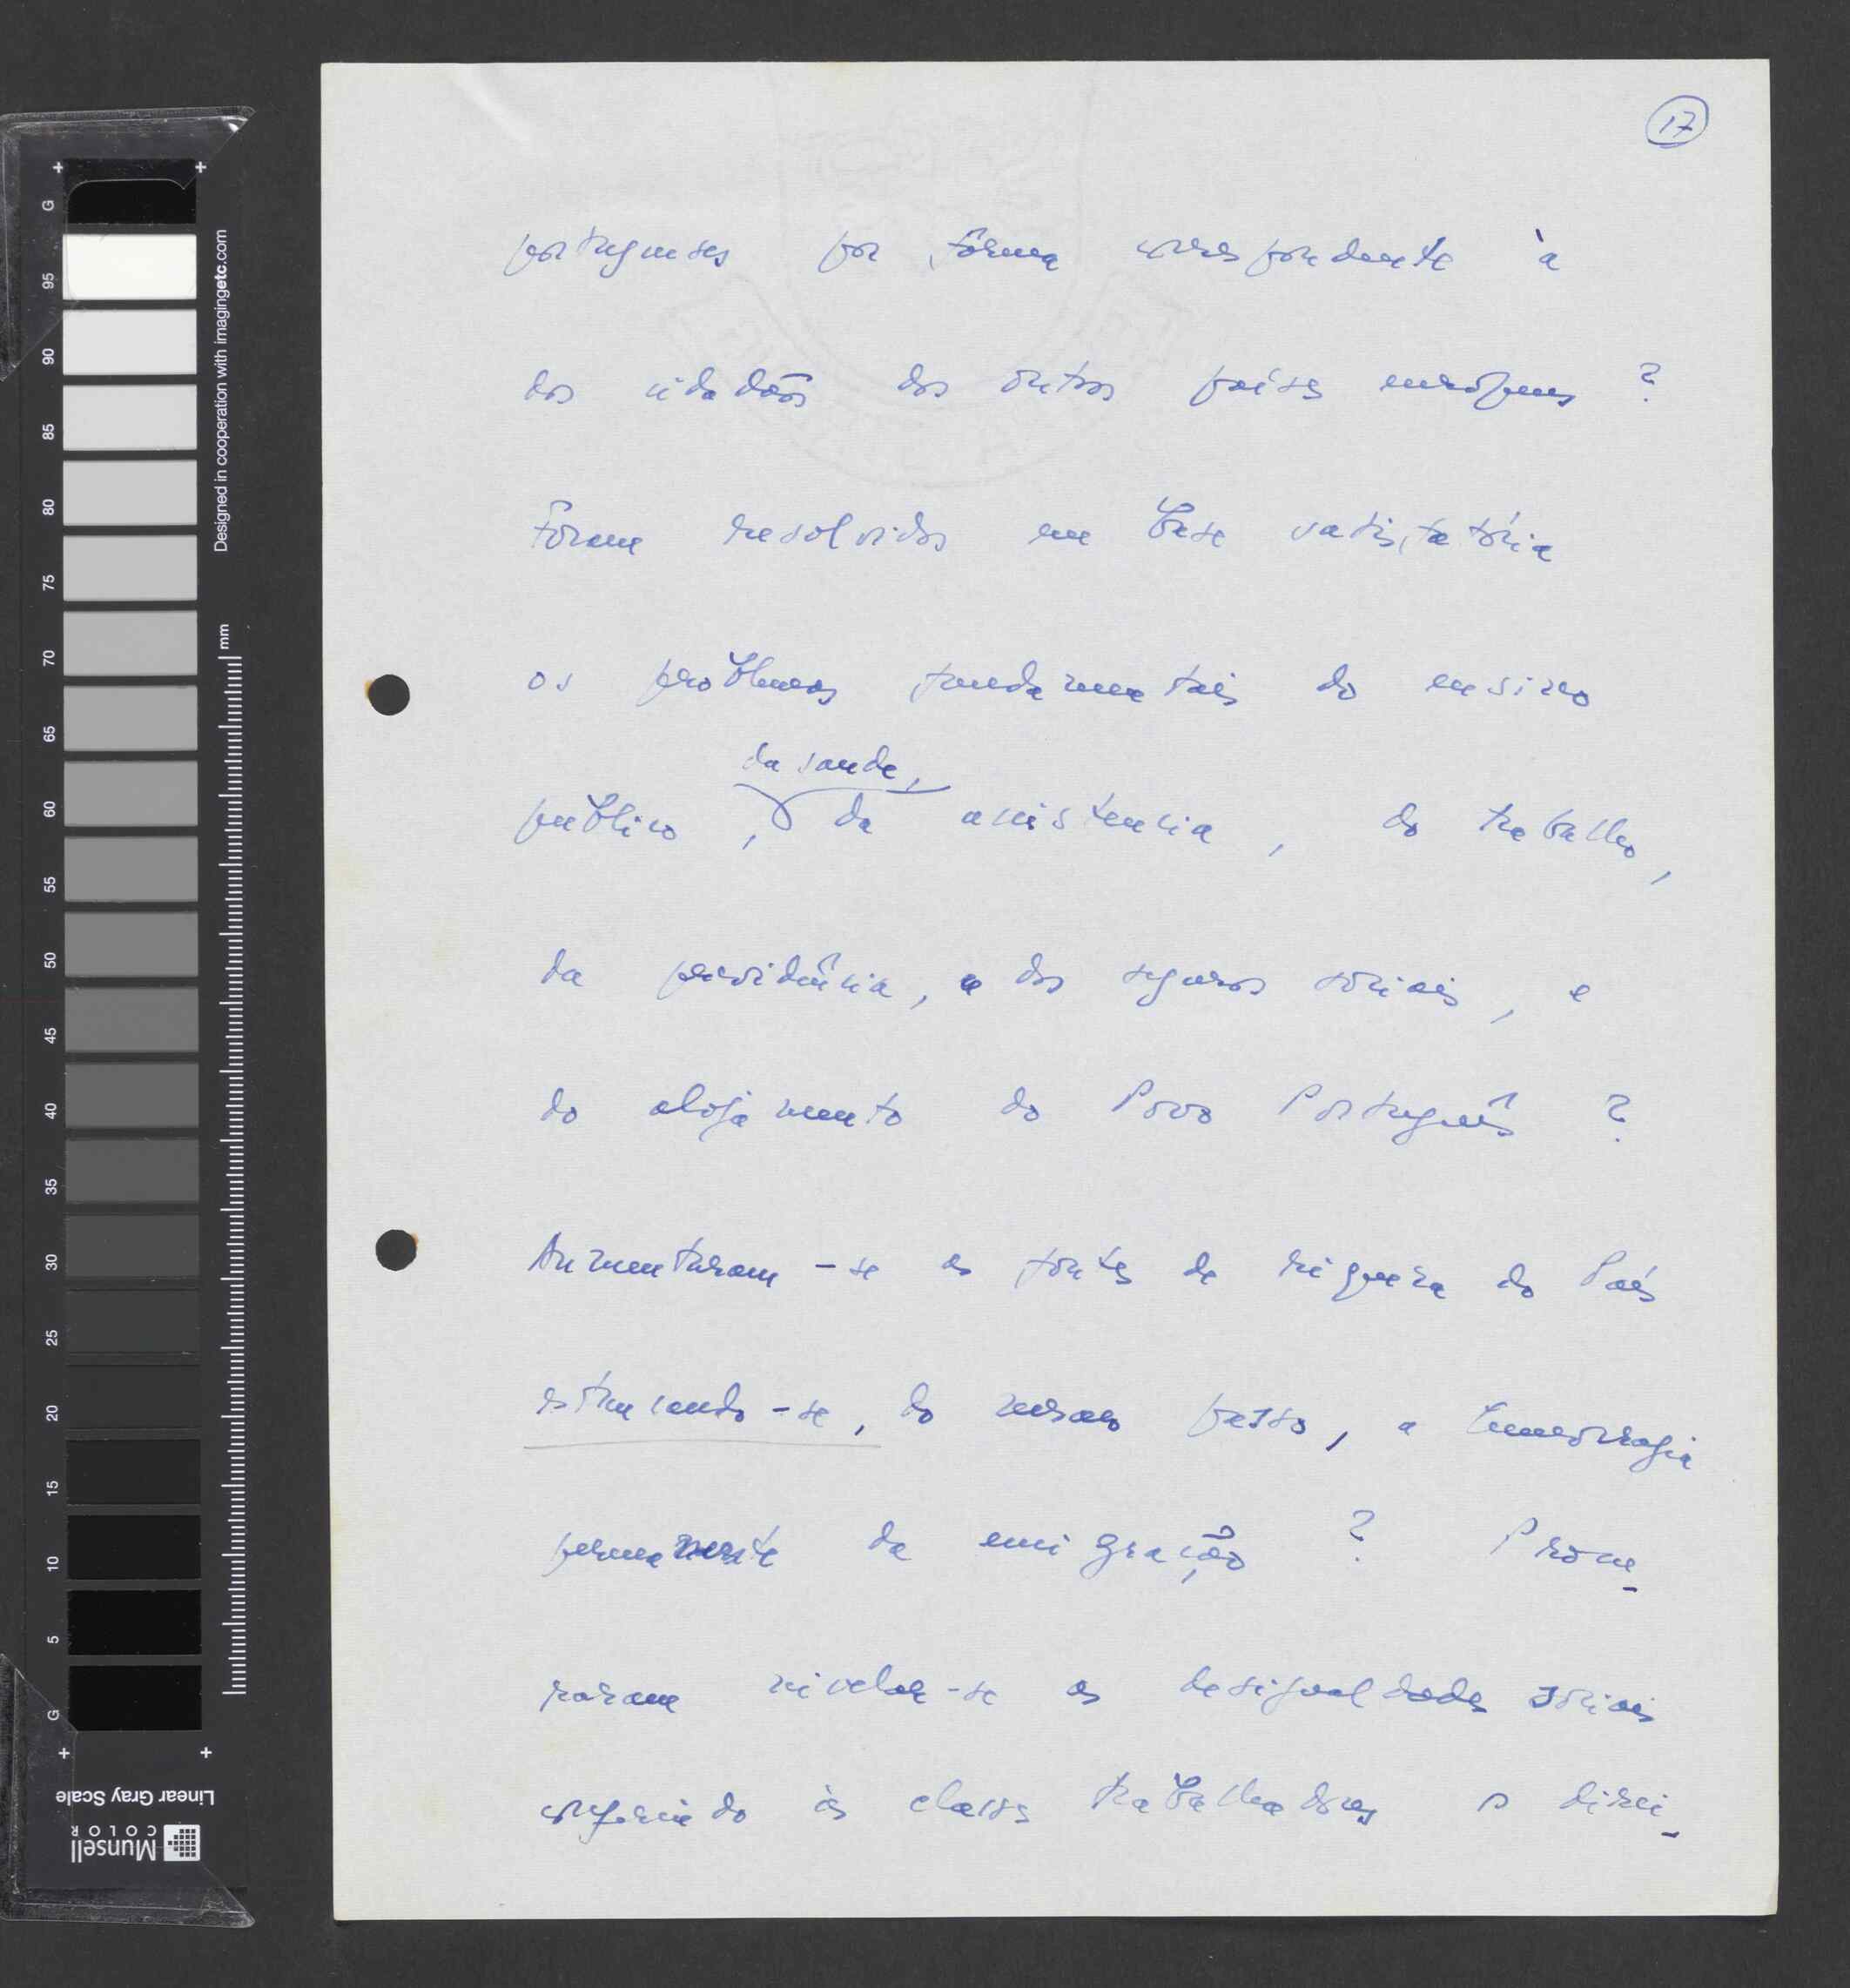 17
portugueses por forma correspondente à
dos cidadãos dos outros países europeus ?
Foram resolvidos em base satisfatória
os problemas fundamentais do ensino
da saude,
publico, da assistencia, do trabalho,
da previdência, e dos seguros sociais, e
do alojamento do Povo Português ?
Aumentaram-se as fontes de riqueza do País
estancando-se, do mesmo passo, a hemorragia
permanente da emigração ? Procu-
raram nivelar-se as desigualdades sociais
conferindo às classes trabalhadoras o direi-
G
95
90
85
80
75
70
65
60
55
50
45
40
35
30
25
20
15
10
5
G
Designed in cooperation with imagingetc.com
mm
Linear Gray Scale
Munsell
COLOR